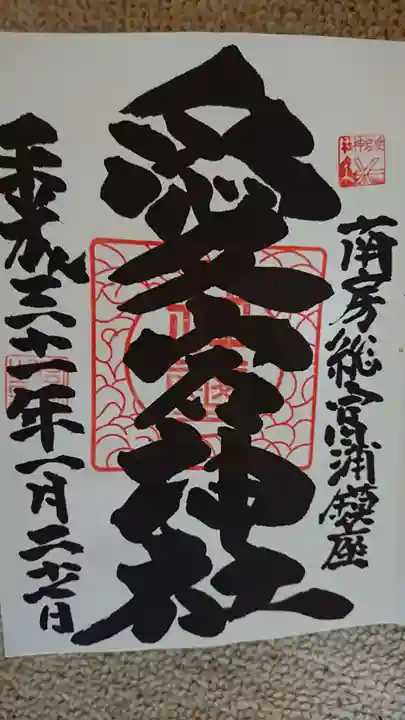 南房総宮浦鎮座
愛宕神社
平成三十一年一月二十七日
愛宕神社